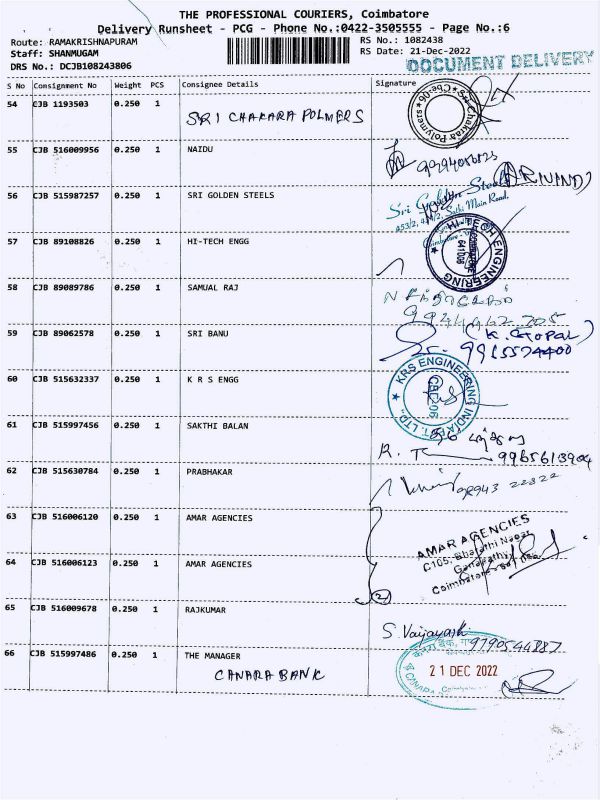 THE PROFESSIONAL COURIERS, Coimbatore
Delivery Runsheet - PCG - Phone No.:0422-3505555 - Page No.:6
Route: RAMAKRISHNAPURAM
Staff: SHANMUGAM
DRS No.: DCJB108243806
RS No.: 1082438
RS Date: 21-Dec-2022
DOCUMENT DELIVERY
S No Consignment No Weight PCS Consignee Details Signature
54 CJB 1193503 0.250 1 SRI CHAKARA POLMERS
55 CJB 516009956 0.250 1 NAIDU
56 CJB 515987257 0.250 1 SRI GOLDEN STEELS
Sri Golden Steels
Main Road,
57 CJB 89108826 0.250 1 HI-TECH ENGG
HI-TECH ENGINEERING
58 CJB 89089786 0.250 1 SAMUAL RAJ
59 CJB 89062578 0.250 1 SRI BANU (K. GOPAL)
9965574400
60 CJB 515632337 0.250 1 K R S ENGG
KRS ENGINEERING INDIA PVT. LTD.,
61 CJB 515997456 0.250 1 SAKTHI BALAN
R. 9965613904
62 CJB 515630784 0.250 1 PRABHAKAR
63 CJB 516006120 0.250 1 AMAR AGENCIES
AMAR AGENCIES
C105, Bharathi Nagar
64 CJB 516006123 0.250 1 AMAR AGENCIES
Ganapathi
(2)
65 CJB 516009678 0.250 1 RAJKUMAR
S. Vaijayashi
9790544887
66 CJB 515997486 0.250 1 THE MANAGER
CANARA BANK
21 DEC 2022